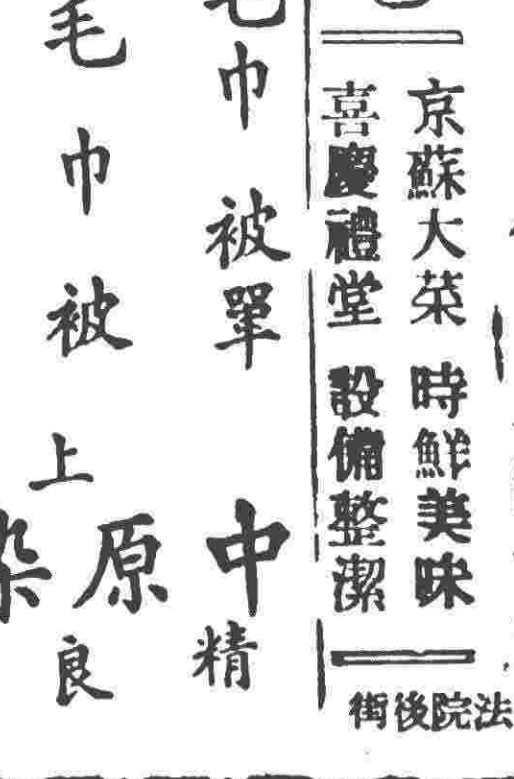 京蘇大菜 時鮮美味
喜慶禮堂 設備整潔
法院後街
毛巾 被單
毛巾 被
中原染
上
精
良